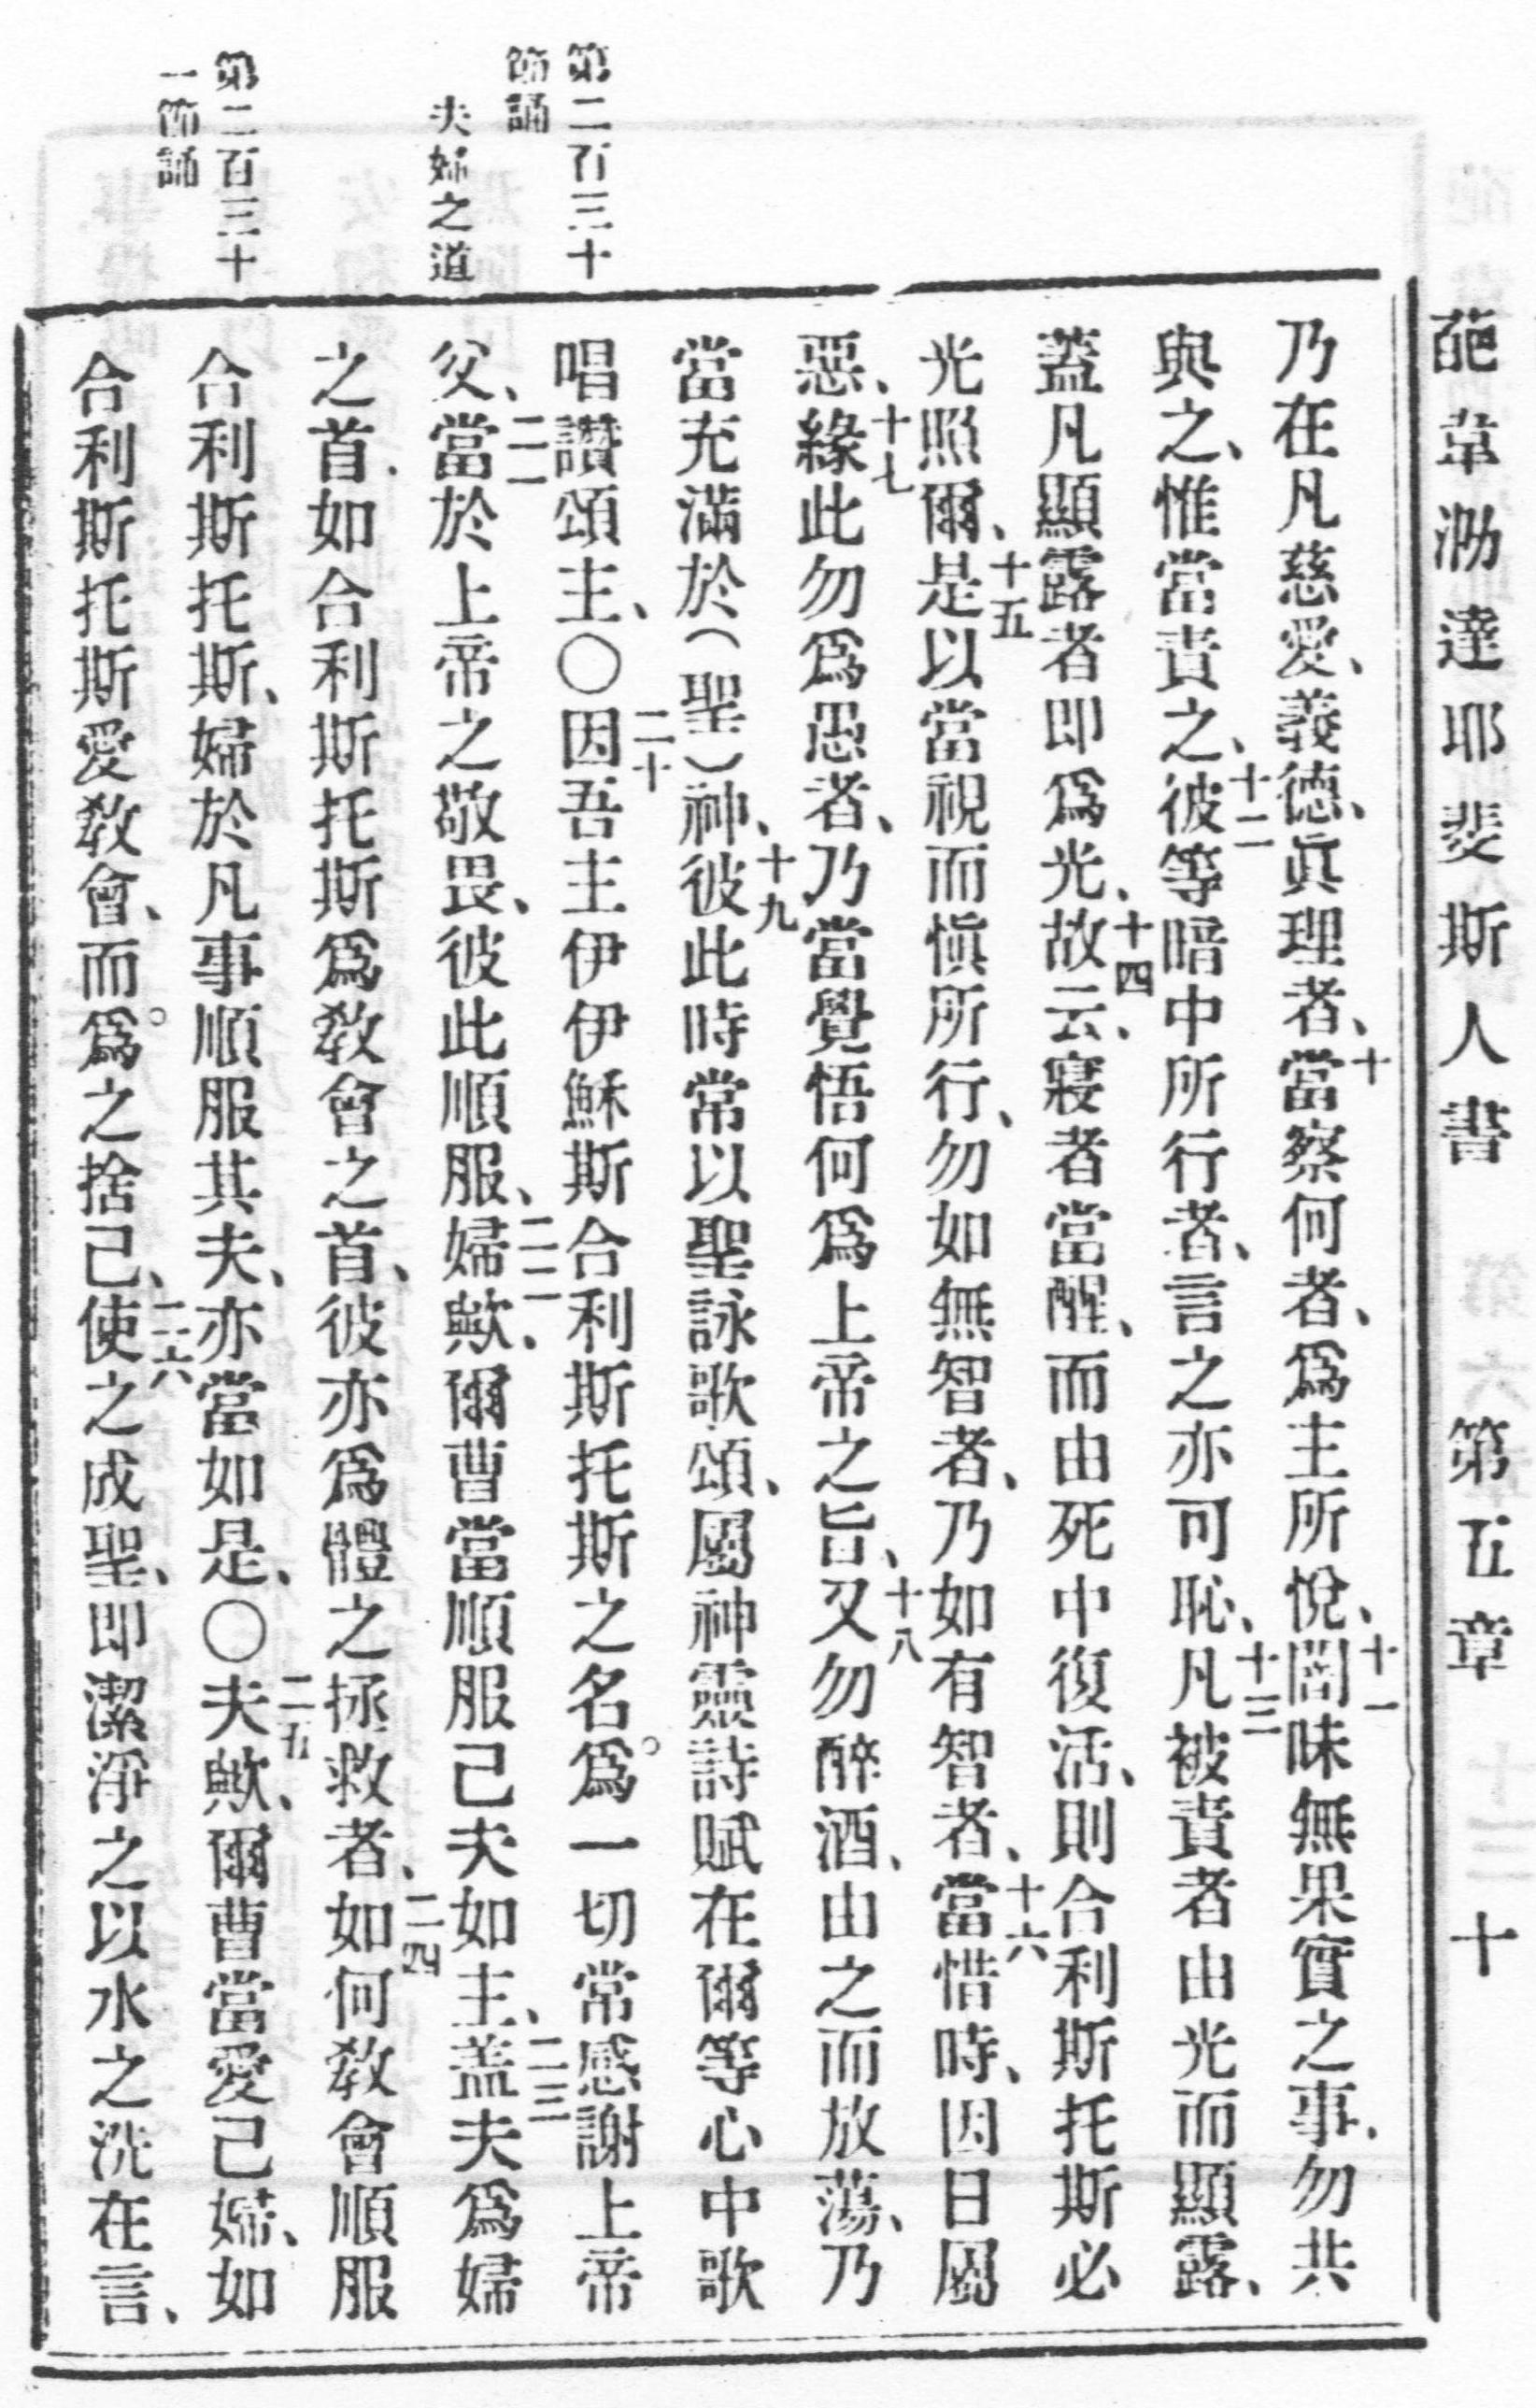 葩韋泐達耶斐斯人書 第五章 十
乃在凡慈愛、義德、眞理者、十當察何者、爲主所悅、十一闇昧無果實之事、勿共
與之、惟當責之、十二彼等暗中所行者、言之亦可恥、十三凡被責者由光而顯露、
蓋凡顯露者即爲光、十四故云、寢者當醒、而由死中復活、則合利斯托斯必
光照爾、十五是以當視而愼所行、勿如無智者、乃如有智者、十六當惜時、因日屬
惡、十七緣此勿爲愚者、乃當覺悟何爲上帝之旨、十八又勿醉酒、由之而放蕩、乃
當充滿於(聖)神、十九彼此時常以聖詠歌頌、屬神靈詩賦在爾等心中歌
唱讚頌主、〇二十因吾主伊伊穌斯合利斯托斯之名。爲一切常感謝上帝
父、二一當於上帝之敬畏、彼此順服、二二婦歟、爾曹當順服己夫如主、二三盖夫爲婦
之首、如合利斯托斯爲敎會之首、彼亦爲體之拯救者、二四如何敎會順服
合利斯托斯、婦於凡事順服其夫、亦當如是、〇二五夫歟、爾曹當愛己婦、如
合利斯托斯愛敎會、而。爲之捨己、二六使之成聖、即潔淨之以水之洗在言、
第二百三十
節誦
夫婦之道
第二百三十
一節誦